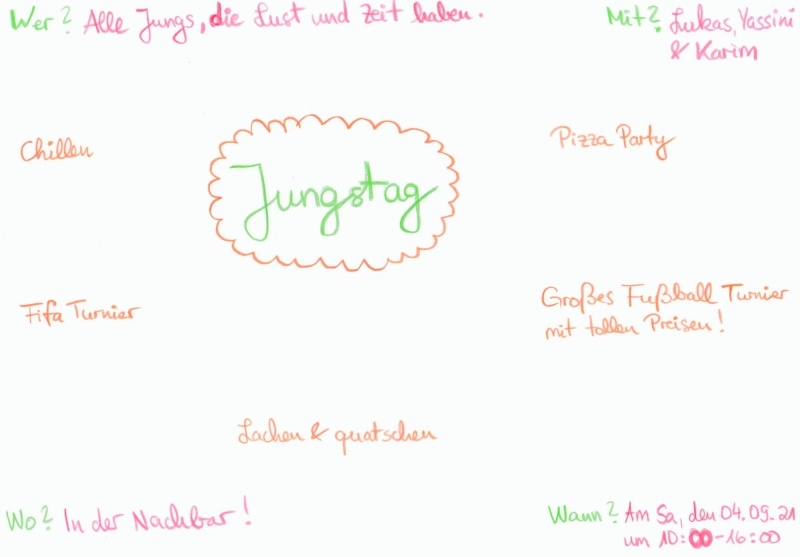 Wer? Alle Jungs, die Lust und Zeit haben.
Mit? Lukas, Yassini
& Karim
Chillen
Pizza Party
Jungstag
Fifa Turnier
Großes Fußball Turnier
mit tollen Preisen!
Lachen & quatschen
Wo? In der Nachbar!
Wann? Am Sa, den 04.09.21
um 10:00-16:00